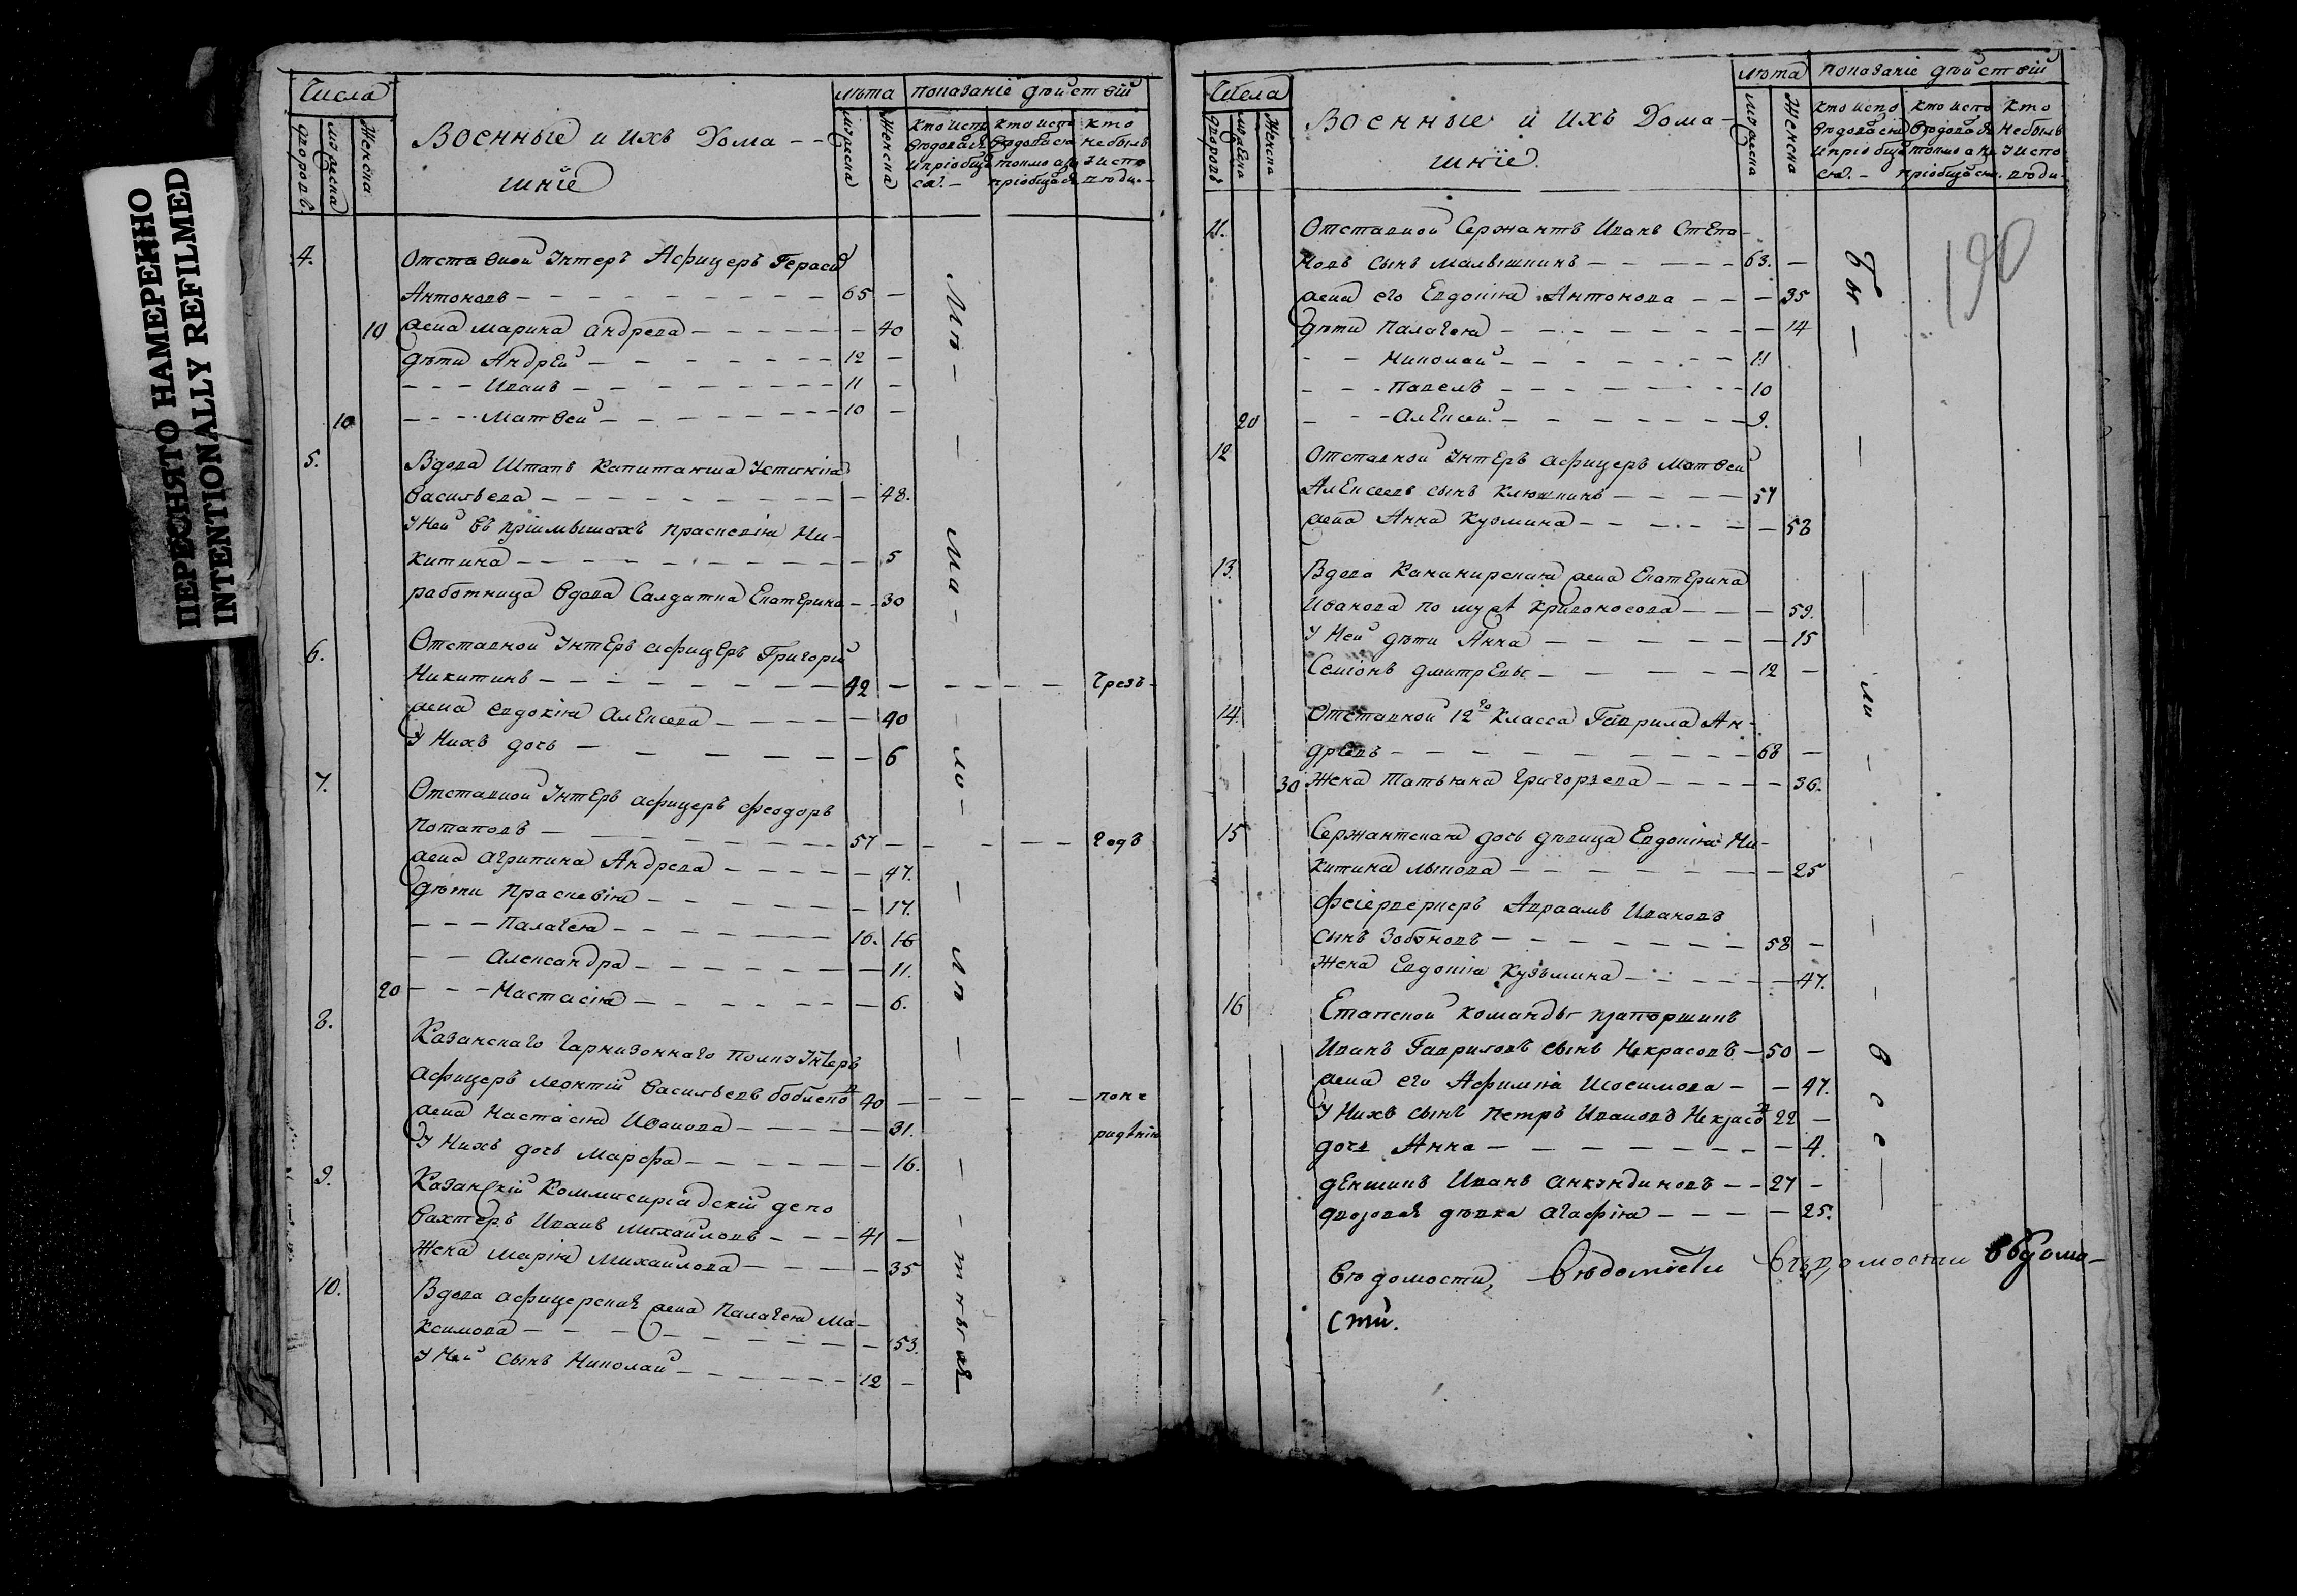 ПЕРЕСНЯТО НАМЕРЕННО
INTENTIONALLY REFILMED
Числа
лѣта
показаніе дѣйствій
дворовъ
мужеска
женска
Военныя и ихъ Дома--
шніе
мужеска
женска
кто испо
вѣдовался
и пріобща
ся.-
кто испо
вѣдовался
токмо а не
пріобщался
кто
не былъ
у испо
вѣди.-
4. Отставной Унтеръ Афицеръ Гераси
Антоновъ - 65 -
10 жена Марина Андрева - 40
дѣти Андрей - 12 -
- - - Иванъ - 11 -
10 - - - Матвей - 10 -
5. Вдова Штапъ Капитанша Устинія
Васильева - 48.
У Ней въ пріимышахъ Прасковія Ни-
китина - 5
работница вдова Салдатка Екатерина - - 30
6. Отставной Унтеръ афицеръ Григорий
Никитинъ - 42 - - - - - Чрезъ -
жена Евдокія Алексева - 40
У Нихъ дочь - 6
7. Отставной Унтеръ афицеръ Феодоръ
Потаповъ - 57 - - - - годъ
жена Агрипина Андрева - 47.
дѣти Прасковія - 17.
- - - Палагея - 16. 16
- - Александра - 11.
20 - - - Настасія - 6.
8. Казанскаго Гарнизоннаго Полку Унтеръ
Афицеръ Леонтій Васильевъ 40 - - - - - поне
жена Настасія Иванова - 31. радѣнію
У Нихъ дочь Марфа - 16.
9. Казанскій Коммисиріадскій депо
Вахтеръ Иванъ Михайловъ - - - 41 -
Жена Марія Михайлова - 35
10. Вдова афицерская жена Палагея Ма-
ксимова - 53.
У Ней сынъ Николай - 12 -
Числа
лѣта
показаніе дѣйствій
дворовъ
мужеска
женска
Военныя и ихъ Дома-
шніе.
мужеска
женска
кто испо
вѣдовался
и пріобща
ся.-
кто испо
вѣдовался
токмо а не
пріобщался.
кто
не былъ
у испо
вѣди-
190
11. Отставной Сержантъ Иванъ Степа-
новъ сынъ Малышкинъ - 63. -
жена его Евдокія Антонова - - 35
дѣти Палагея - 14
- - Николай - 11
- - - Павелъ - 10
20 - - - Алексей - 9.
12 Отставной Унтеръ афицеръ Матвей
Алексеевъ сынъ Клюшкинъ - 57
жена Анна Кузмина - 53
13. Вдова Канцирская жена Екатерина
Иванова по мужѣ Кривоносова - 59.
У Ней дѣти Анна - 15
Семіонъ Дмитревы - 12 -
14. Отставной 12го Класса Гаврила Ан-
древъ - 68 -
30 Жена Татьяна Григорьева - 36.
15 Сержантская дочь дѣвица Евдокія Ни-
китина Лыкова - 25
Фейерверкеръ Авраамъ Ивановъ
сынъ - 58 -
Жена Евдокія Кузьмина - 47.
16 Етапской команды прапорщикъ
Иванъ Гавриловъ сынъ Некрасовъ - 50 -
жена его Афимія Изосимова - - 47.
У Нихъ сынъ Петръ Ивановъ Некрасов 22 -
дочь Анна - 4.
деншикъ Иванъ Анкундиновъ - - 27 -
дворовая дѣвка Агафія - 25.
вѣдомости, вѣдомости вѣдомости
сти.